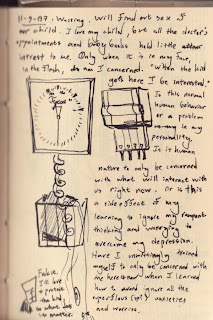 11-9-07. Waiting. Will find out sex of
our child. I love my child, but all the doctor's
appointments and baby books hold little
interest to me. Only when it is in my face,
in the flesh, do am I concerned. "When the kid
gets here I'll be interested."
Is this normal
human behaviour
or a problem
in my
personality.
Is it human
nature to only be concerned
with what will interact with
us right now. Or is this
a side effect of my
learning to ignore my
thinking and worrying to
overcome my depression.
Have I unwittingly trained
myself to only be concerned with
my here & now when I learned
how to avoid ignore all the
superflous (sp?) anxieties
and worries.
Tycos
False.
I'll
the kid